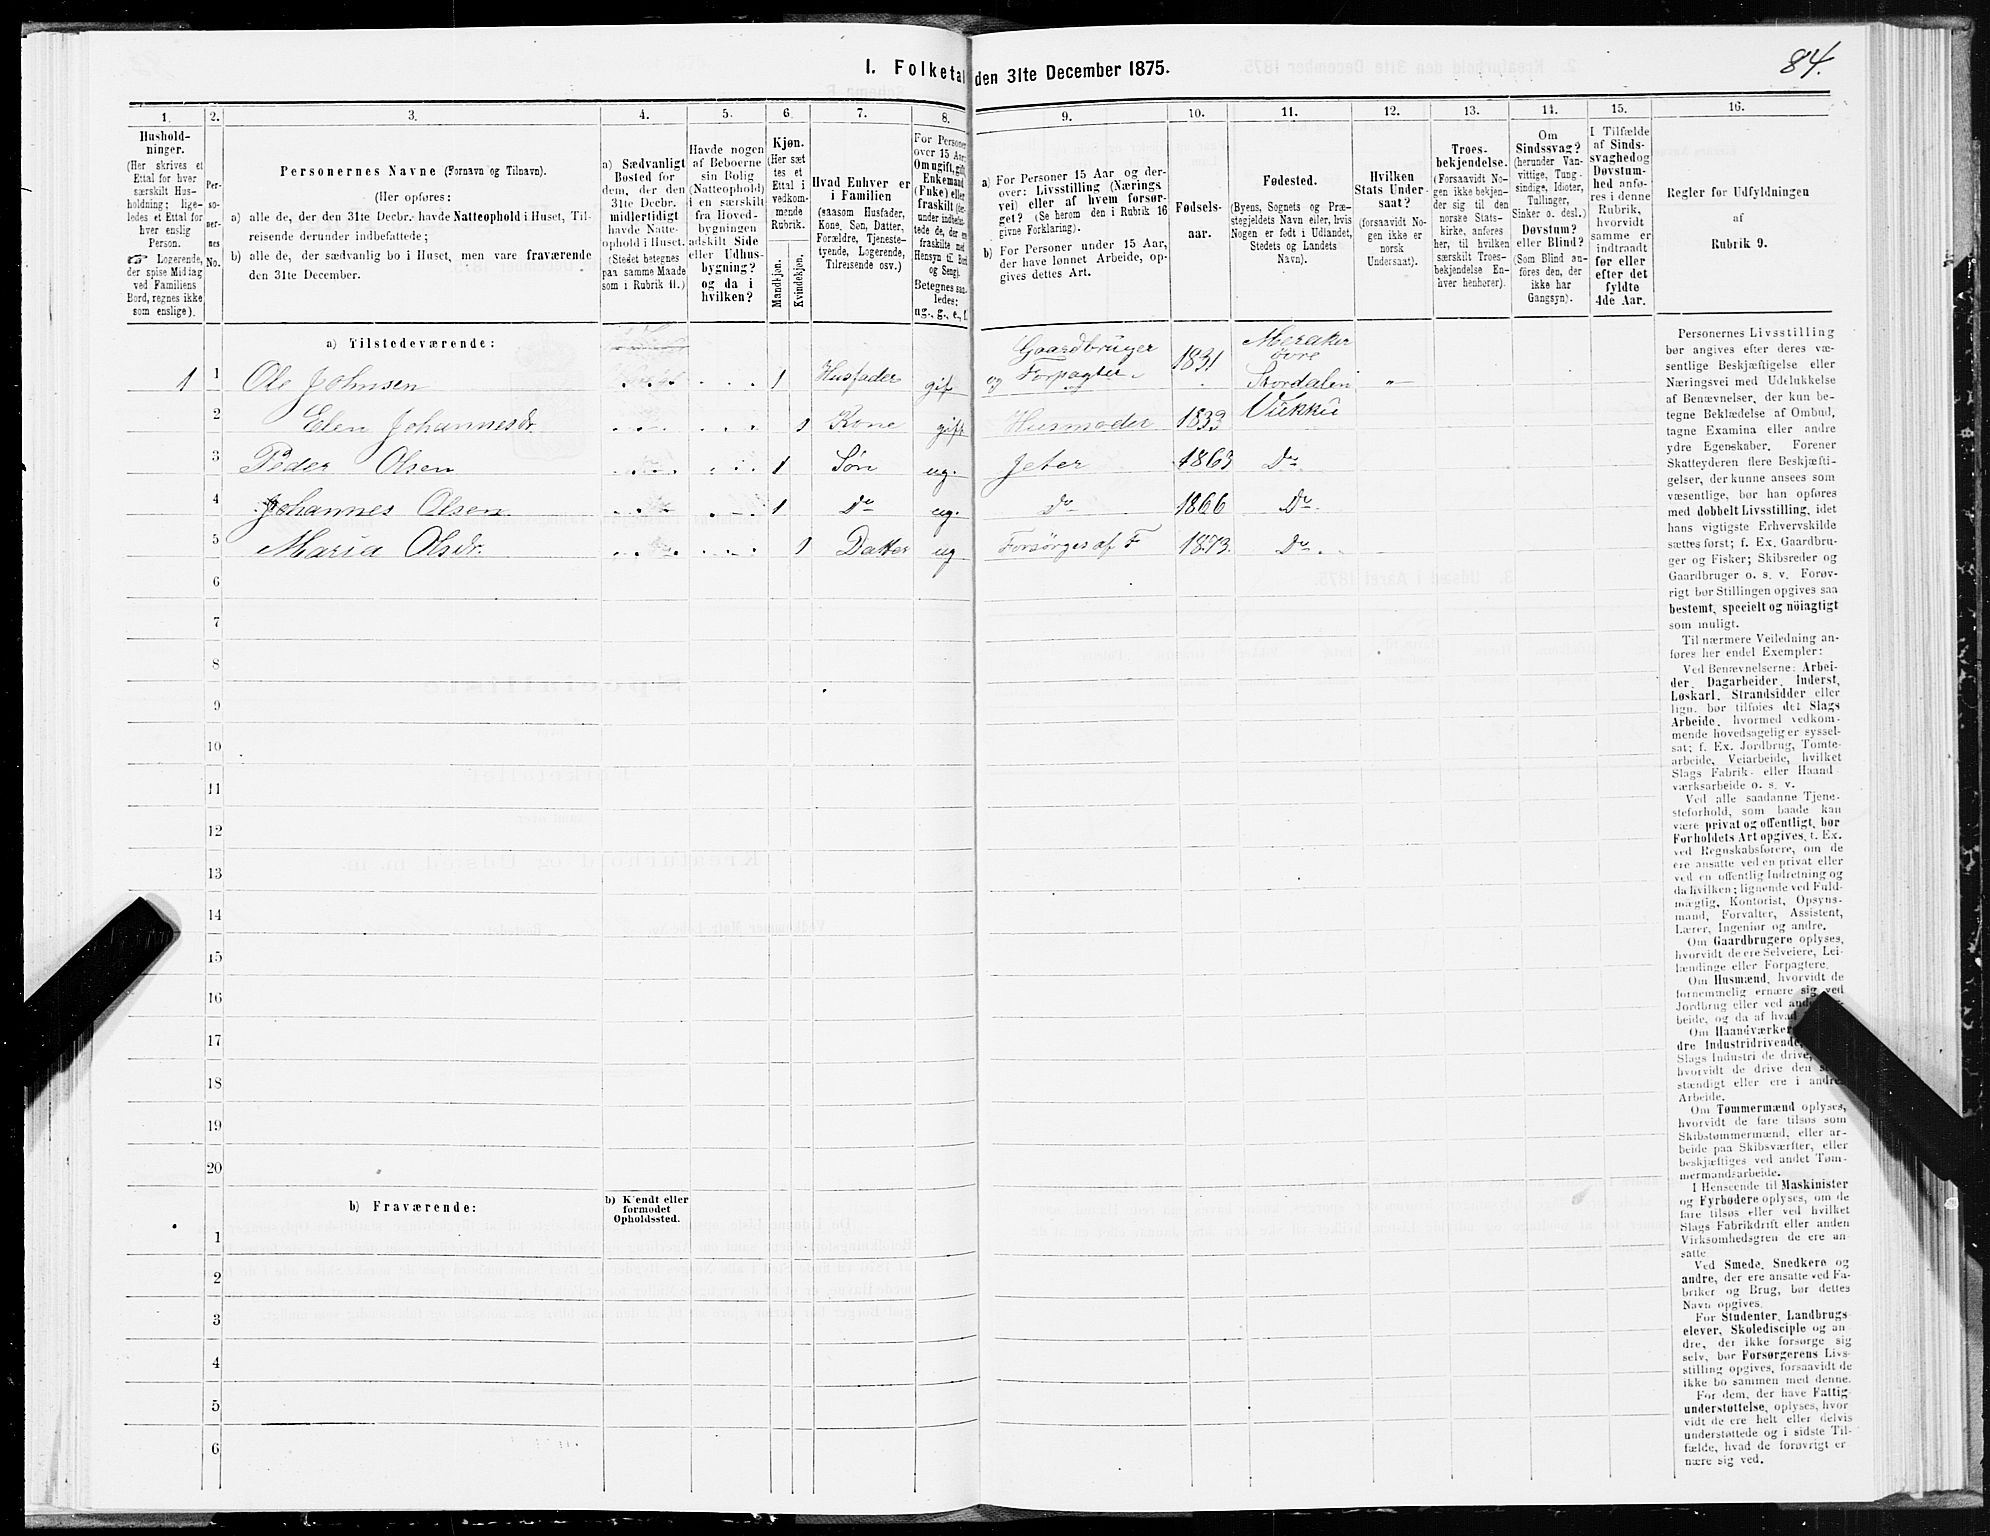 84.
I. Folketal den 31te December 1875.
1.
Hushold-
ninger.
(Her skrives et
Ettal for hver
særskilt Hus-
holdning; lige-
ledes et Ettal for
hver enslig
Person.
☞ Logerende,
der spise Midiag
ved Familiens
Bord, regnes ikke
som enslige).
2.
Per-
so-
ner-
nes
No.
3.
Personernes Navne (Fornavn og Tilnavn).
(Her opføres:
a) alle de, der den 31te Decbr. havde Natteophold i Huset, Til-
reisende derunder indbefattede;
b) alle de, der sædvanlig bo i Huset, men vare fraværende
den 31te December.
4.
a) Sædvanligt
Bosted for
dem, der den
31te Decbr.
midlertidigt
havde Natte-
ophold i Huset.
(Stedet betegnes
paa samme Maade
som i Rubrik 11.)
5.
Havde nogen
af Beboerne
sin Bolig
(Natteophold)
i en særskilt
fra Hoved-
bygningen
adskilt Side
eller Udhus-
bygning?
og da i
hvilken?
6.
Kjøn.
(Her sæt
tes et
Ettal i
vedkom-
mende
Rubrik.
Mandkjøn.
Kvindekjøn.
7.
Hvad Enhver er
i Familien
(saasom Husfader,
Kone, Søn, Datter,
Forældre, Tjeneste-
tyende, Logerende,
Tilreisende osv.)
8.
For Personer
over 15 Aar:
Om ugift, gift,
Enkemand
(Enke) eller
fraskilt (der-
under indbefat-
tede de, der ere
fraskilte med
Hensyn til Bord
og Seng).
Betegnes saa-
ledes:
ug., g., e., f.
9.
a) For Personer 15 Aar og der-
over: Livsstilling (Nærings
vei) eller af hvem forsør-
get? (Se herom den i Rubrik 16
givne Forklaring).
b) For Personer under 15 Aar,
der have lønnet Arbeide, op-
gives dettes Art.
10.
Fødsels-
aar.
11.
Fødested.
(Byens, Sognets og Præ-
stegjeldets Navn eller, hvis
Nogen er født i Udlandet,
Stedets og Landets
Navn).
12.
Hvilken
Stats Under-
saat?
(forsaavidt No-
gen ikke er
norsk
Undersaat).
13.
Troes-
bekjendelse.
(Forsaavidt No-
gen ikke bekjen-
der sig til den
norske Stats-
kirke, anføres
her, til hvilken
særskilt Troes-
bekjendelse En-
hver henhører).
14.
Om
Sindssvag?
(herunder Van-
vittige, Tung-
sindige, Idioter,
Tullinger,
Sinker o. desl.)
Døvstum?
eller Blind?
(Som Blind an-
føres den, der
ikke har
Gangsyn).
15.
I Tilfælde
af Sinds-
svaghedog
Døvstum-
hed anfø-
res i denne
Rubrik,
hvorvidt
samme er
indtraadt
før eller
efter det
fyldte
4de Aar.
16.
Regler for Udfyldningen
af
Rubrik 9.
a) Tilstedeværende:
1 1 Ole Johnsen 1 Husfader gift Gaardbruger og Forpagter 1831 Meraker øvre Stordalen "
2 Elen Johannesdr. 1 Kone gift Husmoder 1833 Vukku
3 Peder Olsen 1 Søn ug. Jeter 1863 Do
4 Johannes Olsen 1 Do ug. Do 1866 Do
5 Maria Olsdr. 1 Datter ug Forsørges af F 1873. Do
6
7
8
9
10
11
12
13
14
15
16
17
18
19
20
b) Fraværende:
b) Kjendt eller
formodet
Opholdssted.
1
2
3
4
5
6
Personernes Livsstilling
bør angives efter deres væ-
sentlige Beskjæftigelse eller
Næringsvei med Udelukkelse
af Benævnelser, der kun be-
tegne Beklædelse af Ombud,
tagne Examina eller andre
ydre Egenskaber. Forener
Skatteyderen flere Beskjæfti-
gelser, der kunne ansees som
væsentlige, bør han opføres
med dobbelt Livsstilling, idet
hans vigtigste Erhvervskilde
sættes først; f. Ex. Gaardbru-
ger og Fisker; Skibsreder og
Gaardbruger o. s. v. Forøv-
rigt bør Stillingen opgives saa
bestemt, specielt og nöiagtigt
som muligt.
Til nærmere Veiledning an-
føres her endel Exempler:
Ved Benævnelserne: Arbei-
der, Dagarbeider, Inderst,
Løskarl, Strandsidder eller
lign. bør tilføies det Slags
Arbeide, hvormed vedkom-
mende hovedsagelig er syssel-
sat; f. Ex. Jordbrug, Tomte-
arbeide, Veiarbeide, hvilket
Slags Fabrik- eller Haand
værksarbeide o. s. v.
Ved alle saadanne Tjene-
steforhold, som baade kan
være privat og offentligt, bør
Forholdets Art opgives, t. Ex.
ved Regnskabsførere, om de
ere ansatte ved en privat eller
ved en offentlig Indretning og
da hvilken; lignende ved Fuld-
mægtig, Kontorist, Opsyns-
mand, Forvalter, Assistent,
Lærer, Ingeniør og andre.
Om Gaardbrugere oplyses,
hvorvidt de ere Selveiere, Lei-
lændinge eller Forpagtere.
Om Husmænd, hvorvidt de
fornemmelig ernære sig ved
Jordbrug eller ved
beide, og da af hvad
Om Haandværker
dre Industridrivende,
Slags Industri de drive,
hvorvidt de drive den
stændigt eller ere i andre
Arbeide.
Om Tømmermænd oplyses,
hvorvidt de fare tilsøs som
Skibstømmermænd, eller ar-
beide paa Skibsværfter, eller
beskjæftiges ved andet Tøm-
mermandsarbeide.
I Henseende til Maskinister
og Fyrbødere oplyses, om de
fare tilsøs eller ved hvilket
Slags Fabrikdrift eller anden
Virksomhedsgren de ere an-
satte
Ved Smede, Snedkere og
andre, der ere ansatte ved Fa-
briker og Brug, bør dettes
Navn opgives.
For Studenter, Landbrugs-
elever, Skoledisciple og an-
dre, der ikke forsørge sig
selv, bør Forsørgerens Livs-
stilling opgives, forsaavidt de
ikke bo sammen med denne.
For dem, der have Fattig-
understøttelse, oplyses, hvor
vidt de ere helt eller delvis
understøttede og i sidste Til-
fælde, hvad de forøvrigt er
nære sig ved.